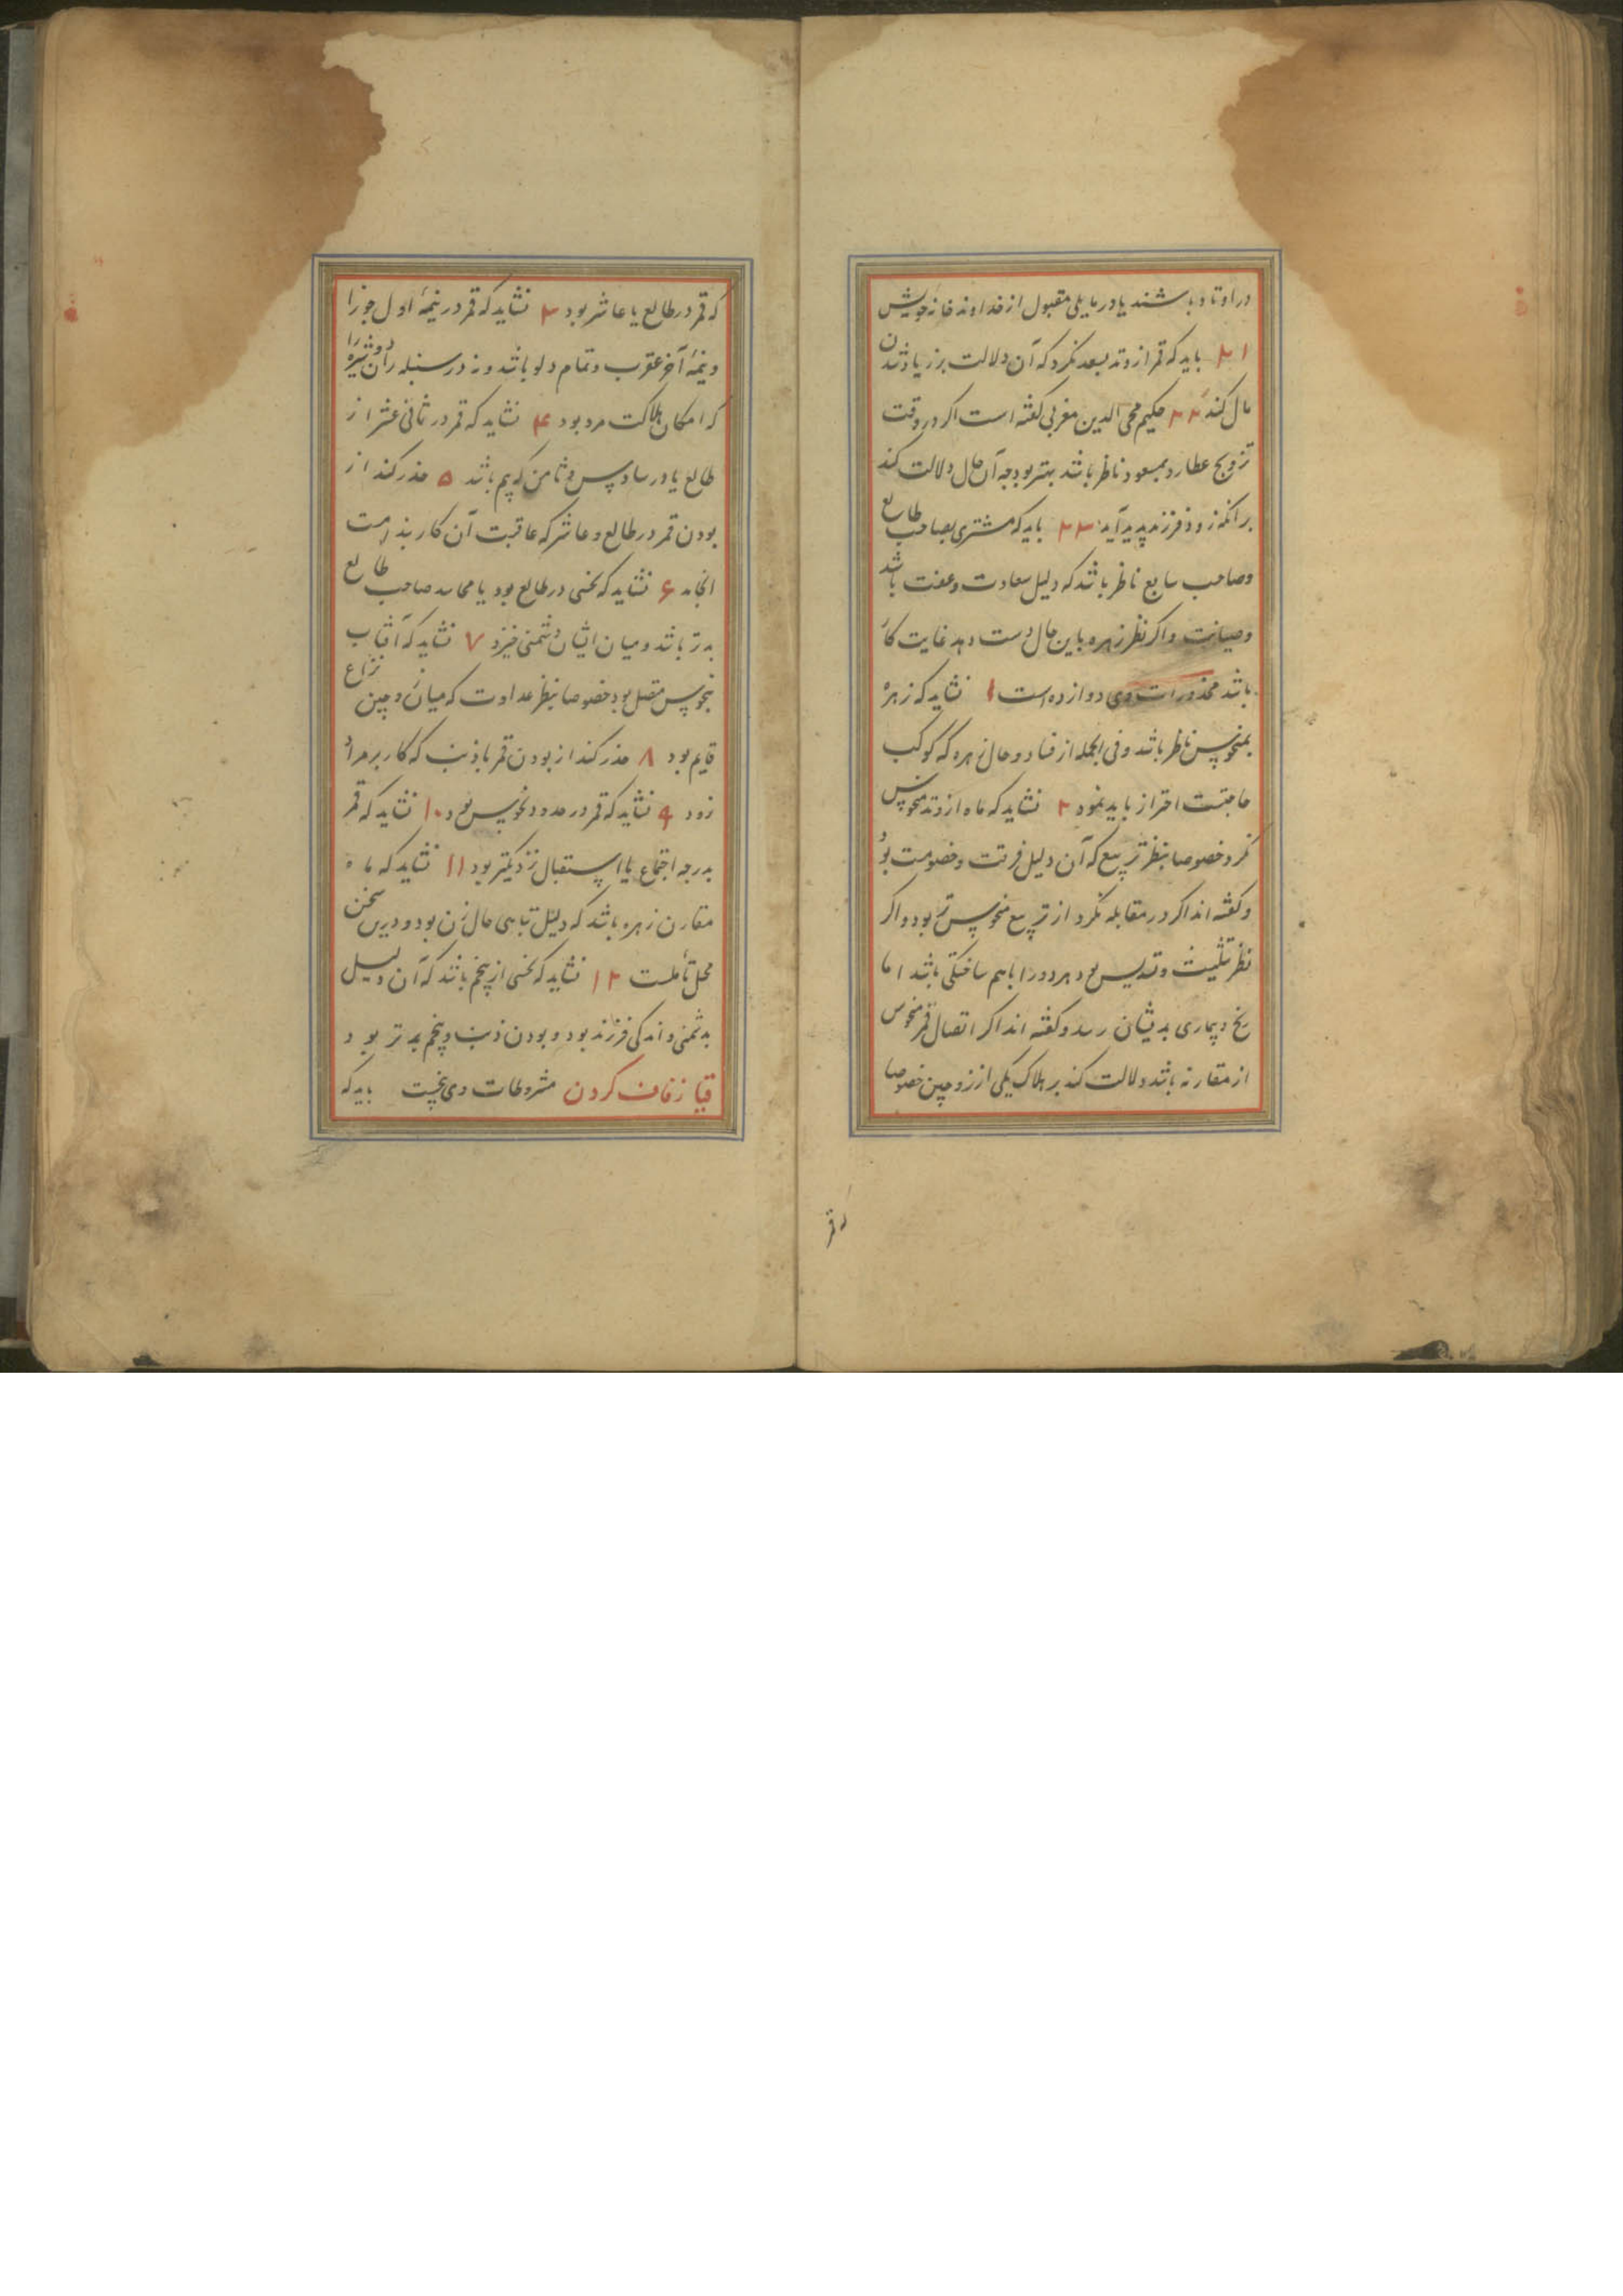 در اوتاد باشند یا در مایلی مقبول از خداوند خانه خویش
۲۱ باید که قمر از وتد بسعد نکرد که آن دلالت بر زیاد شدن
مال کند ۲۲ حکیم محی الدین مغربی کفته است اکر در وقت
تزویج عطارد بمسعود ناظر باشد بهتر بود چه آن حال دلالت کند
برانکه زود فرزند پدید آید ۲۳ باید که مشتری بصاحب طالع
وصاحب سابع ناظر باشد که دلیل سعادت وعفت باشد
وصیانت واکر نظر زهره باین حال دست دهد غایت کار
باشد محذورات وی دوازده است ۱ نشاید که زهره
بمنحوس ناظر باشد وفی الجمله از فساد وحال زهره که کوکب
حاجتست احتراز باید نمود ۲ نشاید که ماه از وتد منحوس
نکرد خصوصا بنظر تربیع که آن دلیل فرقت وخصومت بود
وکفته اند اکر در مقابله نکرد از تربیع منحوس تر بود واکر
نظر تثلیث وتسدیس بود هر دو را باهم ساختکی باشد اما
رنج وبیماری بدیشان رسد وکفته اند اکر اتصال قمر منحوس
از مقارنه باشد دلالت کند بر هلاک یکی از زوجین خصوصا
که قمر
که قمر در طالع یا عاشر بود ۳ نشاید که قمر در نیمهٔ اول جوزا
ونیمهٔ آخر عقرب وتمام دلو باشد ونه در سنبله زن دوشیزه را
که امکان هلاکت مرد بود ۴ نشاید که قمر در ثانی عشر از
طالع یا در سادس وثامن که بیم باشد ۵ حذر کند از
بودن قمر در طالع وعاشر که عاقبت آن کار بندامت
انجامد ۶ نشاید که نحسی در طالع بود یا صاحب طالع
بدتر باشد ومیان ایشان دشمنی خیزد ۷ نشاید که آفتاب
بنحوس متصل بود خصوصا بنظر عداوت که میان زوجین نزاع
قایم بود ۸ حذر کند از بودن قمر با ذنب که کار بر مراد
نرود ۹ نشاید که قمر در حدود نحوس بود ۱۰ نشاید که قمر
بدرجه اجتماع یا استقبال نزدیکتر بود ۱۱ نشاید که ماه
مقارن زهره باشد که دلیل تباهی حال زن بود ودرین سخن
محل تأملست ۱۲ نشاید که نحسی از پنجم باشد که آن دلیل
بدشمنی واندکی فرزند بود وبودن ذنب وپنجم بدتر بود
زفاف کردن مشروطات وی پنجست باید که